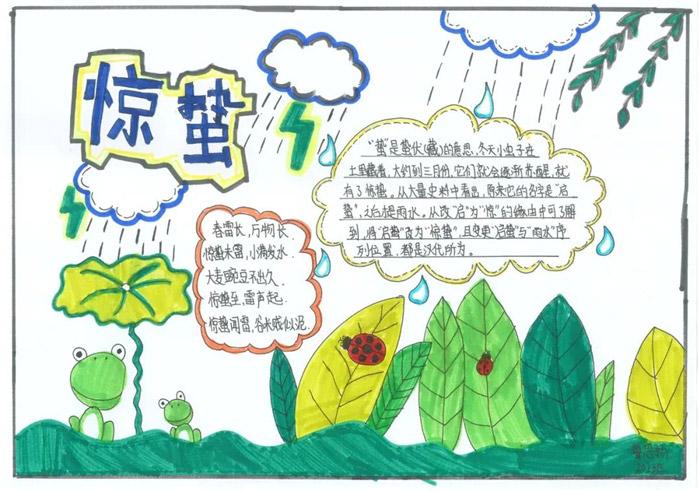 惊蛰
春雷长，万物长．
惊蛰未雷，小满发水．
大麦豌豆不出九．
惊蛰至，雷声起．
惊蛰闻雷，谷米贱似泥．
"蛰"是蛰伏(藏)的意思，冬天小虫子在
土里藏着，大约到三月份，它们就会逐渐苏醒，就
有了惊蛰。从大量史料中看出，原来它的名字是"启
蛰"，之后是雨水，从改"启"为"惊"的缘由中可了解
到，将"启蛰"改为"惊蛰"，且变更"启蛰"与"雨水"序
列位置，都是汉代所为。